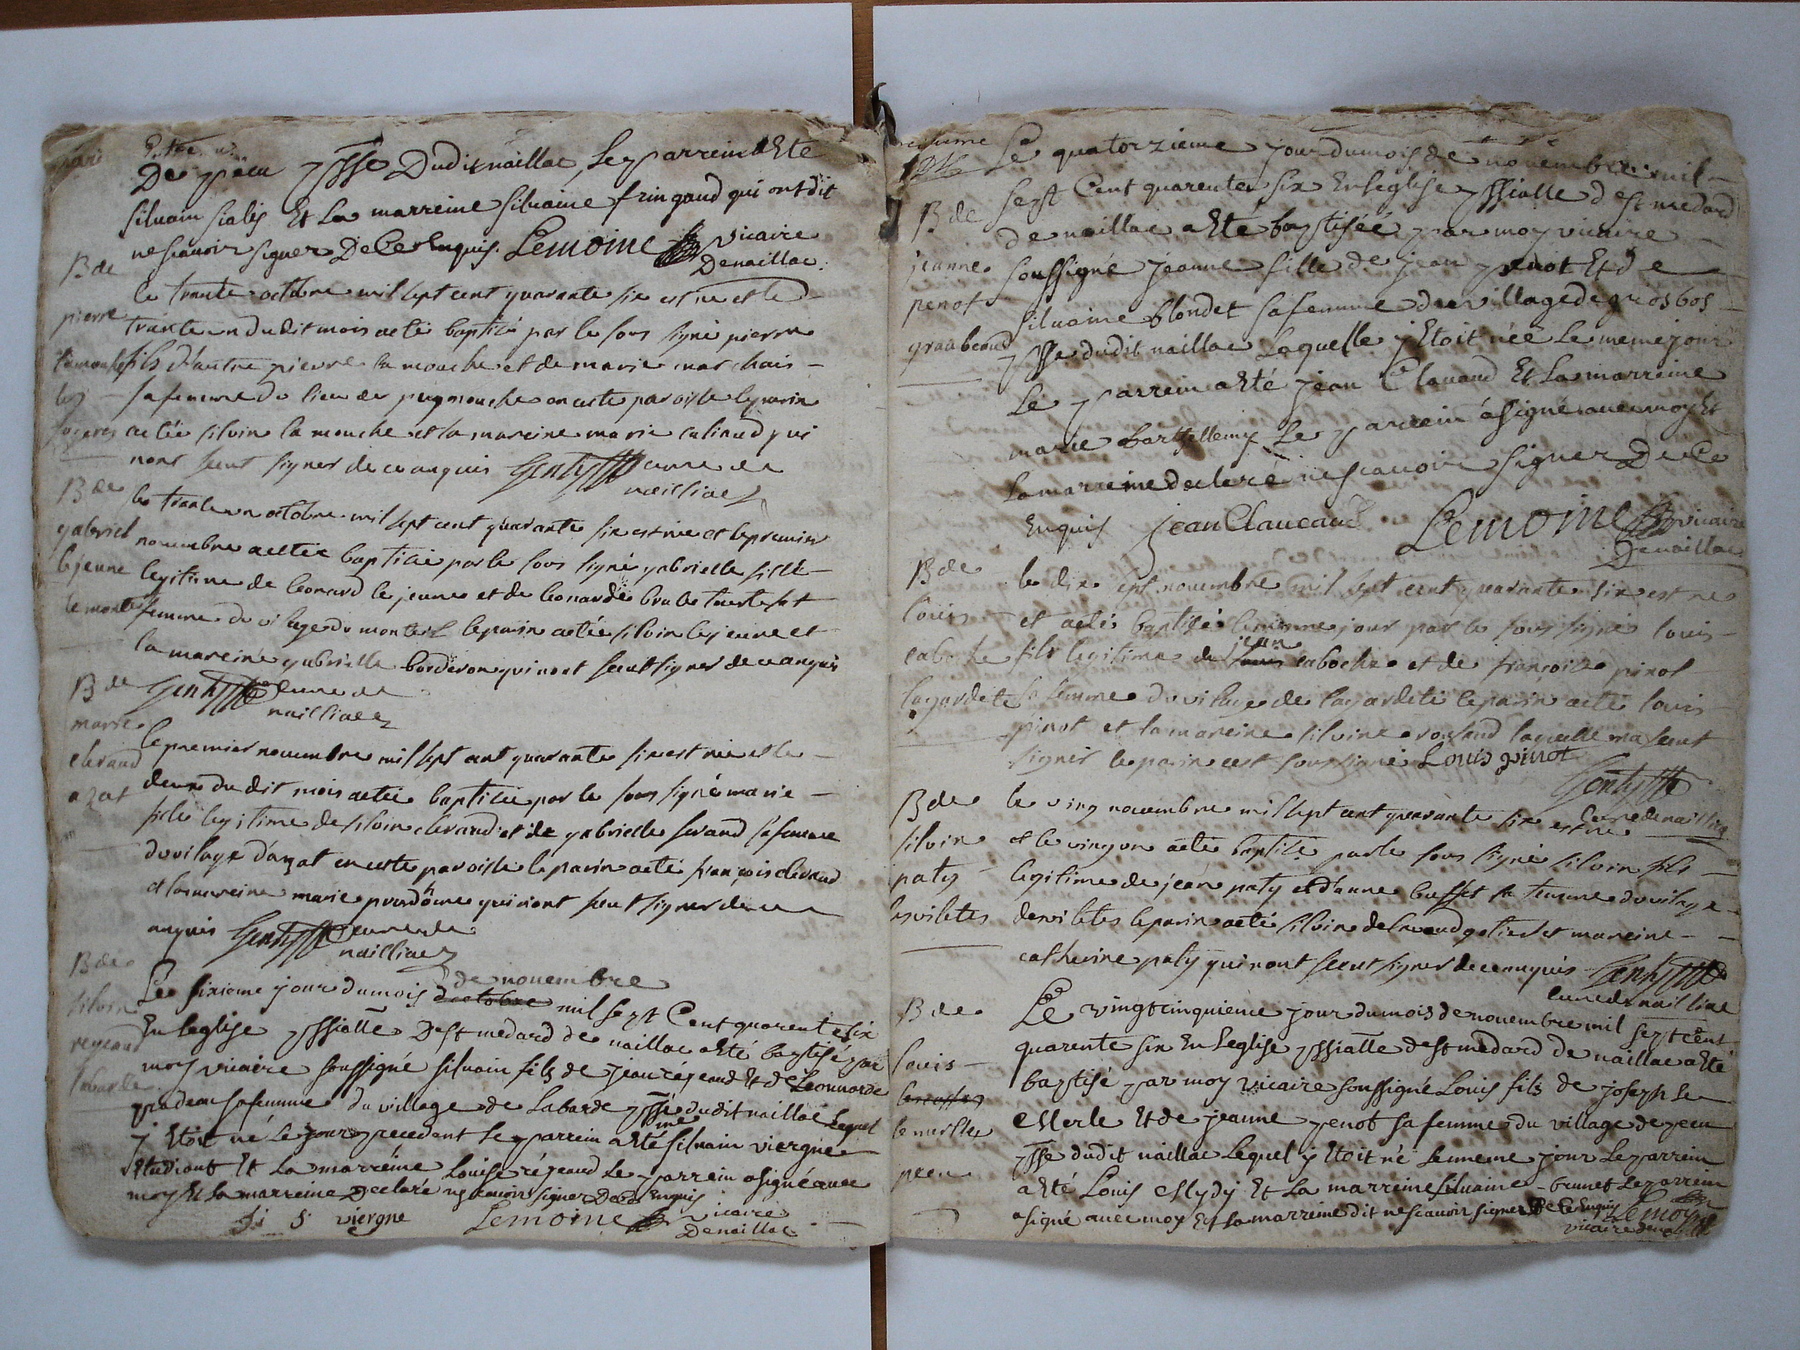 De peu psse Dudit naillac, Le parrein a Eté
silvain sialis Et La marreine silvaine fringaud qui ont dit
ne scavoir signer De Ce Enquis. Lemoine vicaire
Denaillac.
B de
pierre
lamouche
le trante octobre mil sept cent quarante six est né et le
trante un du dit mois a eté baptisé par le sous signé pierre
fils d'autre pierre la mouche et de marie marchais
sa femme du lieu de puymouche en cette paroisse le parin
a eté silvin la mouche et la mareine marie caliaud qui
nont sceut signer de ce anquis Genty curé de
nailliac
B de
gabriel
lejeune
le monteil
le trante un octobre mil sept cent quarante six est né et le premier
novembre a eté baptisée par le sous signé gabrielle fille
legitime de leonard le jeune et de leonarde sa
femme du vilage du monteil le parin a eté silvin lejeune et
la mareine gabrielle borderon qui nont sceut signer de ce anquis
Genty curé de
nailliac
B de
marie
cleraud
azat
le premier novembre mil sept cent quarante six est né et le
deux du dit mois a eté baptisée par le sous signé marie
fille legitime de silvin cleraud et de gabrielle feraud sa femme
du vilage d'azat en cette paroisse le parin a eté françois cleraud
et la mareine marie prudôme qui nont sceut signer de ce
anquis Genty curé de
nailliac
B de
silvain
rejeaud
labarde
Le sixieme jour du mois d'octobre de novembre mil sept Cent quarente six
En Leglise pssialle De st medard de naillac a eté baptisé par
moy vicaire soussigné silvain fils de jean rejeaud Et de Leonnarde
pradeau sa femme du village de Labarde psse dudit naillac Lequel
y Etoit né Le jour precedent Le parrein a Eté silvain viergne
Etudiant Et La marreine Louise réjeaud Le parrein a signé avec
moy Et La marreine Declaré ne scavoir signer De Ce Enquis
s viergne Lemoine vicaire
Denaillac
Le quatorzieme jour du mois de novembre mil
sept Cent quarente six En Leglise pssialle de st medard
de naillac a Eté baptiséé par moy vicaire
soussigné jeanne fille de jean penot Et de
silvaine blondet sa femme du village de gros bos
psse dudit naillac Laquelle y Etoit née Le meme jour
Le parrein a Eté jean Clavaud Et La marreine
marie barthellemy Le parrein à signé avec moy Et
La marreine declaré ne scavoir signer De Ce
Enquis jean Claveaud Lemoine vicaire
Denaillac
B de
jeanne
penot
B de
louis
caboche
lagardete
le dix sept novembre mil sept cent quarante six est né
et a eté baptisé le meme jour par le sous signé louis
fils legitime de jean caboche et de françoise pinot
sa femme du vilage de lagardete le parin a eté louis
pinot et la mareine silvine rouland laquelle na sceut
signer le parin cest sous signé Louis pinot
Genty
curé de nailliac
B de
silvin
paty
les viletes
le ving novembre mil sept cent quarante six est né
et le ving un a eté baptisé par le sous signé silvin fils
legitime de jean paty et d'anne busset sa femme du vilage
des viletes le parin a eté silvin et mareine
catherine paty qui nont sceut signer de ce anquis Genty
curé de nailliac
B de
louis
le mesle
peu
Le vingt cinquieme jour du mois de novembre mil sept Cent
quarente six En Leglise pssialle de st medard de naillac a Eté
baptisé par moy vicaire soussigné Louis fils de joseph Le
Merle Et de jeanne penot sa femme du village de peu
psse dudit naillac Lequel y Etoit né Le meme jour Le parrein
a Eté Louis Mydy Et La marreine silvaine brunet Le parrein
a signé avec moy Et La marreine dit ne scavoir signer De Ce Enquis Lemoine
vicaire Denaillac